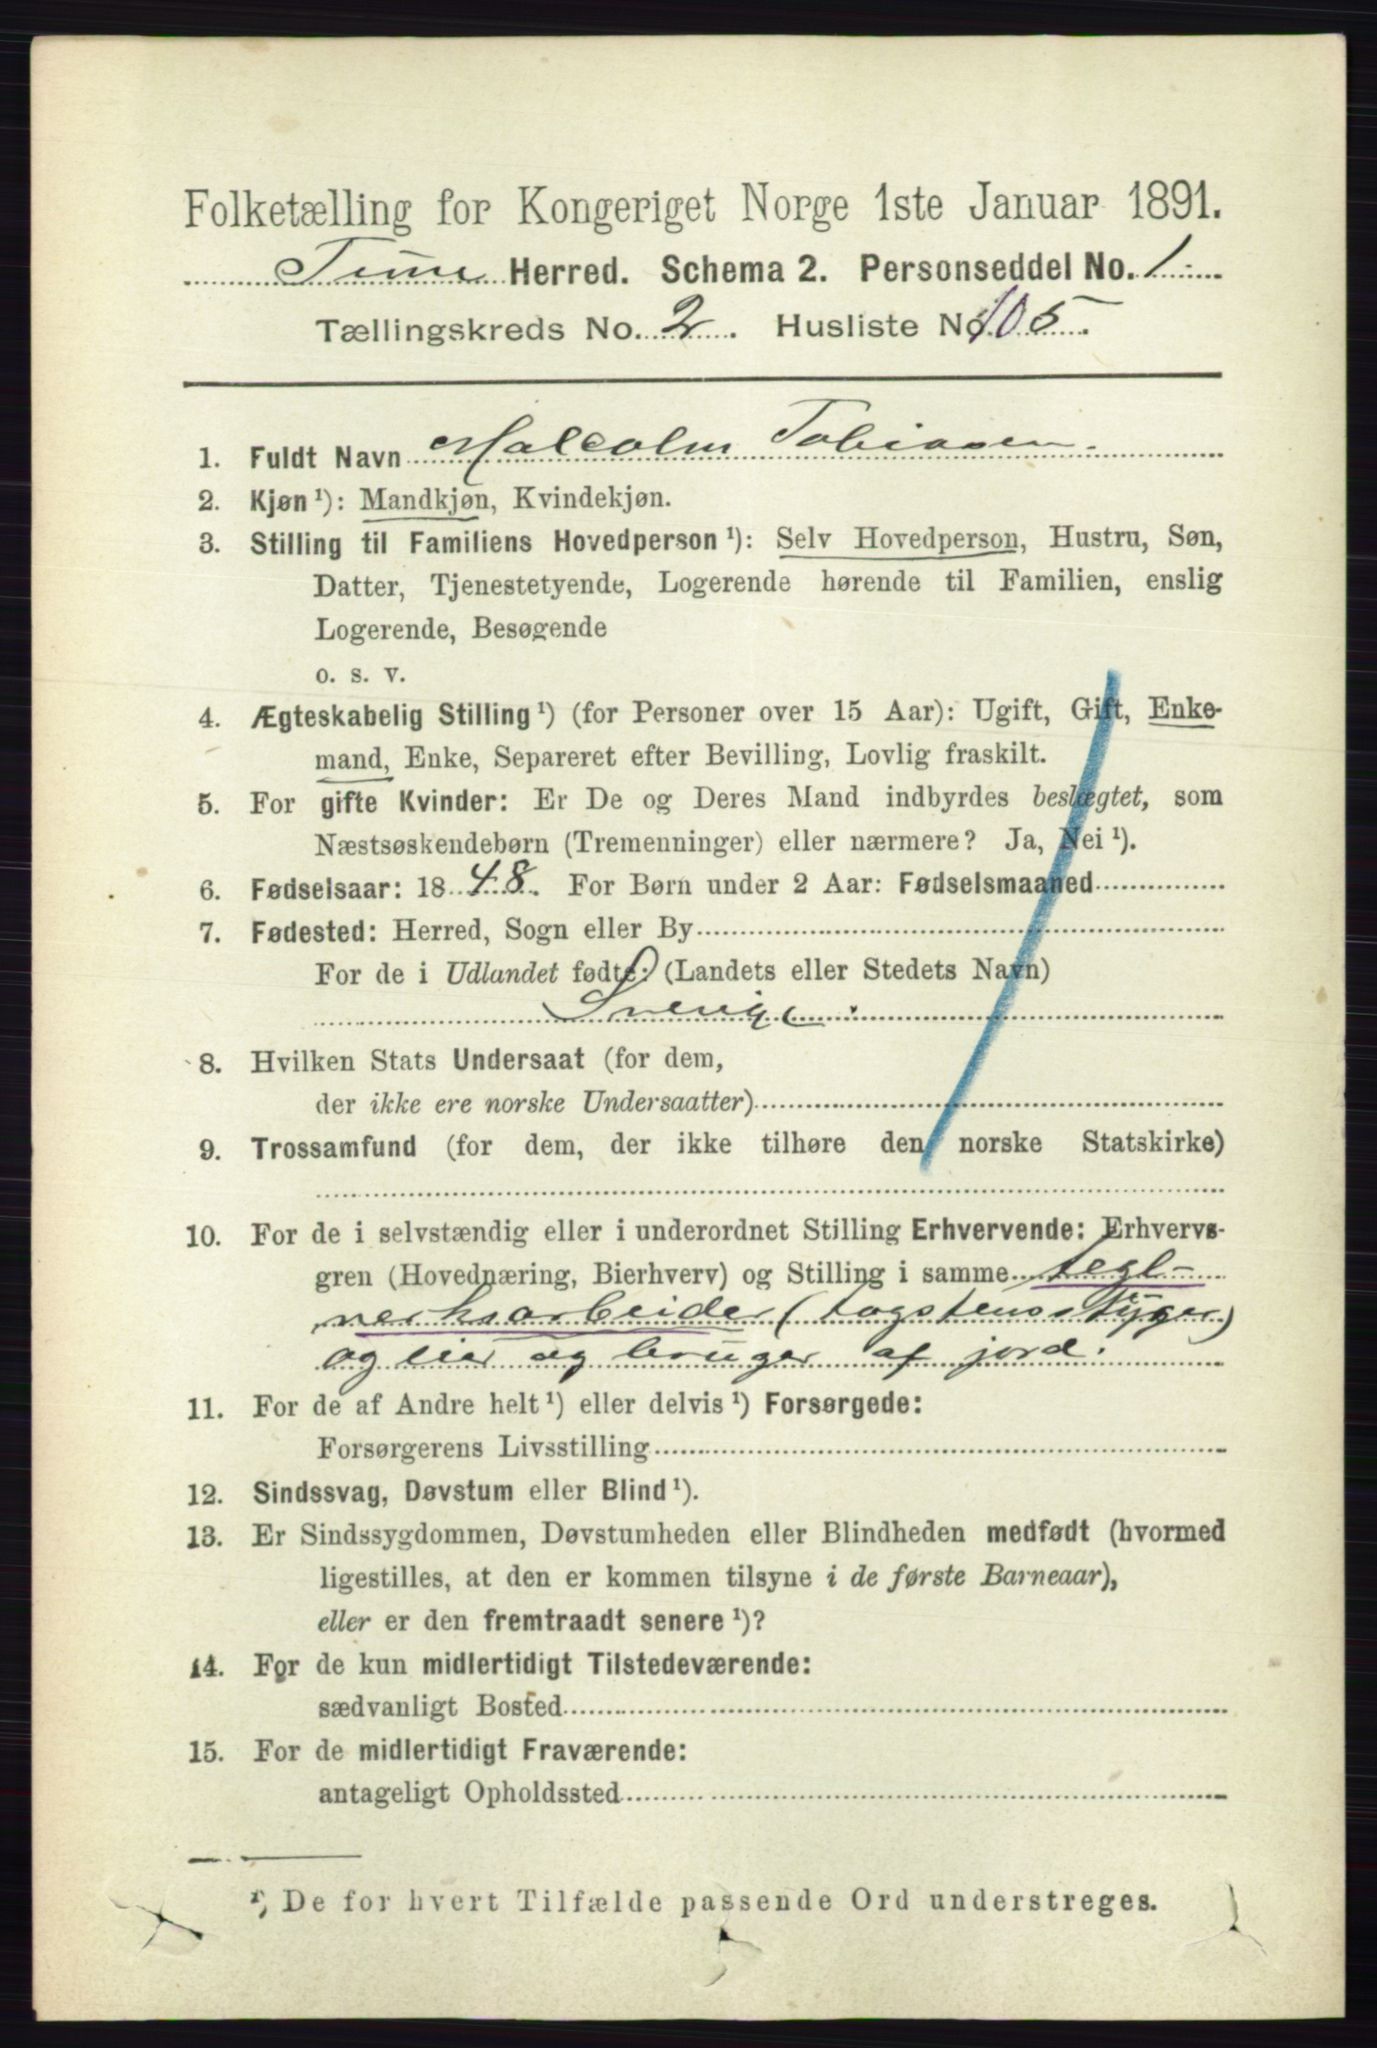 Folketælling for Kongeriget Norge 1ste Januar 1891.
Tune Herred. Schema 2. Personseddel No. 1
Tællingskreds No. 2. Husliste No. 105.
1. Fuldt Navn Malcolm Tobiasen.
2. Kjøn ¹): Mandkjøn, Kvindekjøn.
3. Stilling til Familiens Hovedperson ¹): Selv Hovedperson, Hustru, Søn,
Datter, Tjenestetyende, Logerende hørende til Familien, enslig
Logerende, Besøgende
o. s. v.
4. Ægteskabelig Stilling ¹) (for Personer over 15 Aar): Ugift, Gift, Enke-
mand, Enke, Separeret efter Bevilling, Lovlig fraskilt.
5. For gifte Kvinder: Er De og Deres Mand indbyrdes beslægtet, som
Næstsøskendebørn (Tremenninger) eller nærmere? Ja, Nei ¹).
6. Fødselsaar: 1848. For Børn under 2 Aar: Fødselsmaaned
7. Fødested: Herred, Sogn eller By
For de i Udlandet fødte: (Landets eller Stedets Navn)
Sverige.
8. Hvilken Stats Undersaat (for dem,
der ikke ere norske Undersaatter)
9. Trossamfund (for dem, der ikke tilhøre den norske Statskirke)
10. For de i selvstændig eller i underordnet Stilling Erhvervende: Erhvervs-
gren (Hovednæring, Bierhverv) og Stilling i samme tegl-
verksarbeider (tagstensstryger)
og eier og bruger af jord.
11. For de af Andre helt ¹) eller delvis ¹) Forsørgede:
Forsørgerens Livsstilling
12. Sindssvag, Døvstum eller Blind ¹).
13. Er Sindssygdommen, Døvstumheden eller Blindheden medfødt (hvormed
ligestilles, at den er kommen tilsyne i de første Barneaar),
eller er den fremtraadt senere ¹)?
14. For de kun midlertidigt Tilstedeværende:
sædvanligt Bosted
15. For de midlertidigt Fraværende:
antageligt Opholdssted
¹) De for hvert Tilfælde passende Ord understreges.